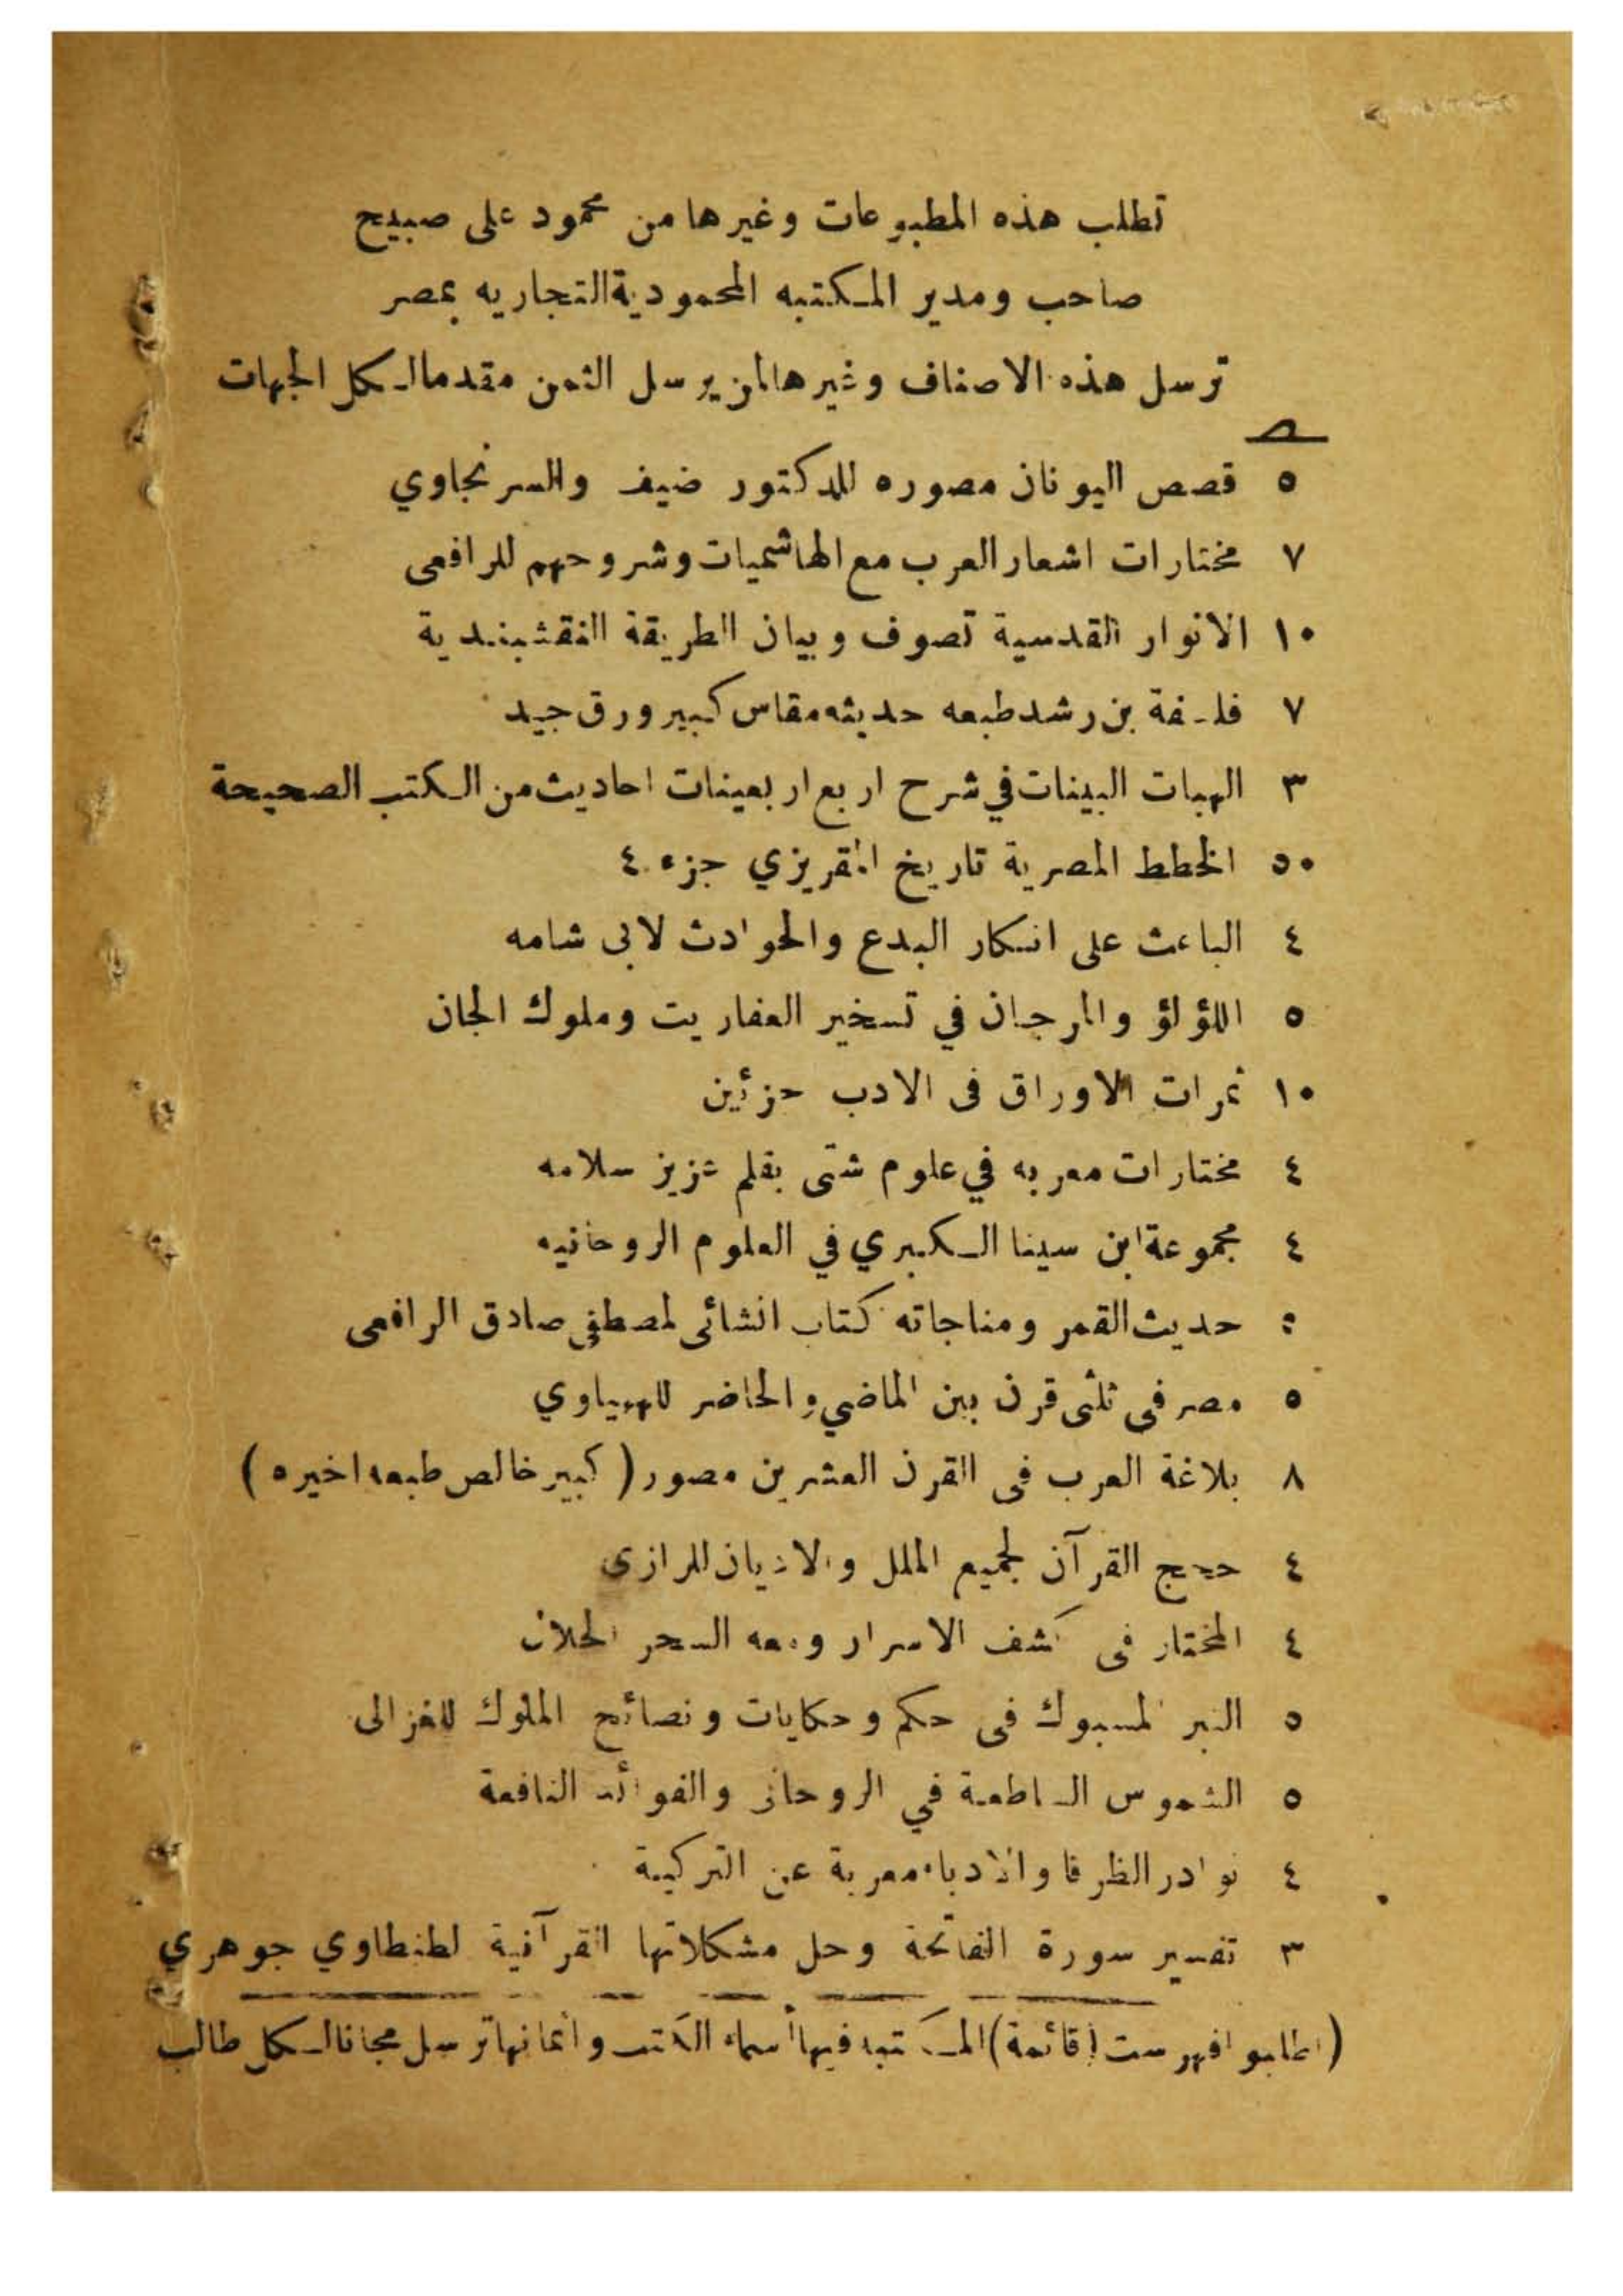 تطلب هذه المطبوعات وغيرها من محمود على صبيح
صاحب ومدير المكتبه المحمودية التجاريه بمصر
ترسل هذه الاصناف وغيرها لمن يرسل الثمن مقدما لكل الجهات
صـ
٥ قصص اليونان مصوره للدكتور ضيف والسرنجاوي
٧ مختارات اشعار العرب مع الهاشميات وشروحهم للرافعى
١٠ الانوار القدسية تصوف وبيان الطريقة النقشبندية
٧ فلسفة بن رشد طبعه حديثه مقاس كبير ورق جيد
٣ الهبات البينات في شرح اربع اربعينات احاديث من الكتب الصحيحة
٥٠ الخطط المصرية تاريخ المقريزي جزء ٤
٤ الباعث على انكار البدع والحوادث لابى شامه
٥ اللؤلؤ والمرجان في تسخير العفاريت وملوك الجان
١٠ ثمرات الاوراق فى الادب جزئين
٤ مختارات معربه في علوم شتى بقلم عزيز سلامه
٤ مجموعة ابن سينا الكبري في العلوم الروحانيه
حديث القمر ومناجاته كتاب انشائى لمصطفى صادق الرافعى
٥ مصر فى ثلثى قرن بين الماضي والحاضر للههياوي
٨ بلاغة العرب فى القرن العشرين مصور (كبير خالص طبعه اخيره)
٤ حجج القرآن لجميع الملل والاديان للرازى
٤ المختار فى كشف الاسرار ومعه السحر الحلال
٥ التبر المسبوك فى حكم وحكايات ونصائح الملوك للغزالى
٥ الشموس الساطعة في الروحانى والفوائد النافعة
٤ نوادر الظرفا والادباء معربة عن التركية
٣ تفسير سورة الفاتحة وحل مشكلاتها القرآنية لطنطاوي جوهري
(اطلبو افهرست (قائمة) المكتبه فيها أسماء الكتب واثمانها ترسل مجانا لكل طالب